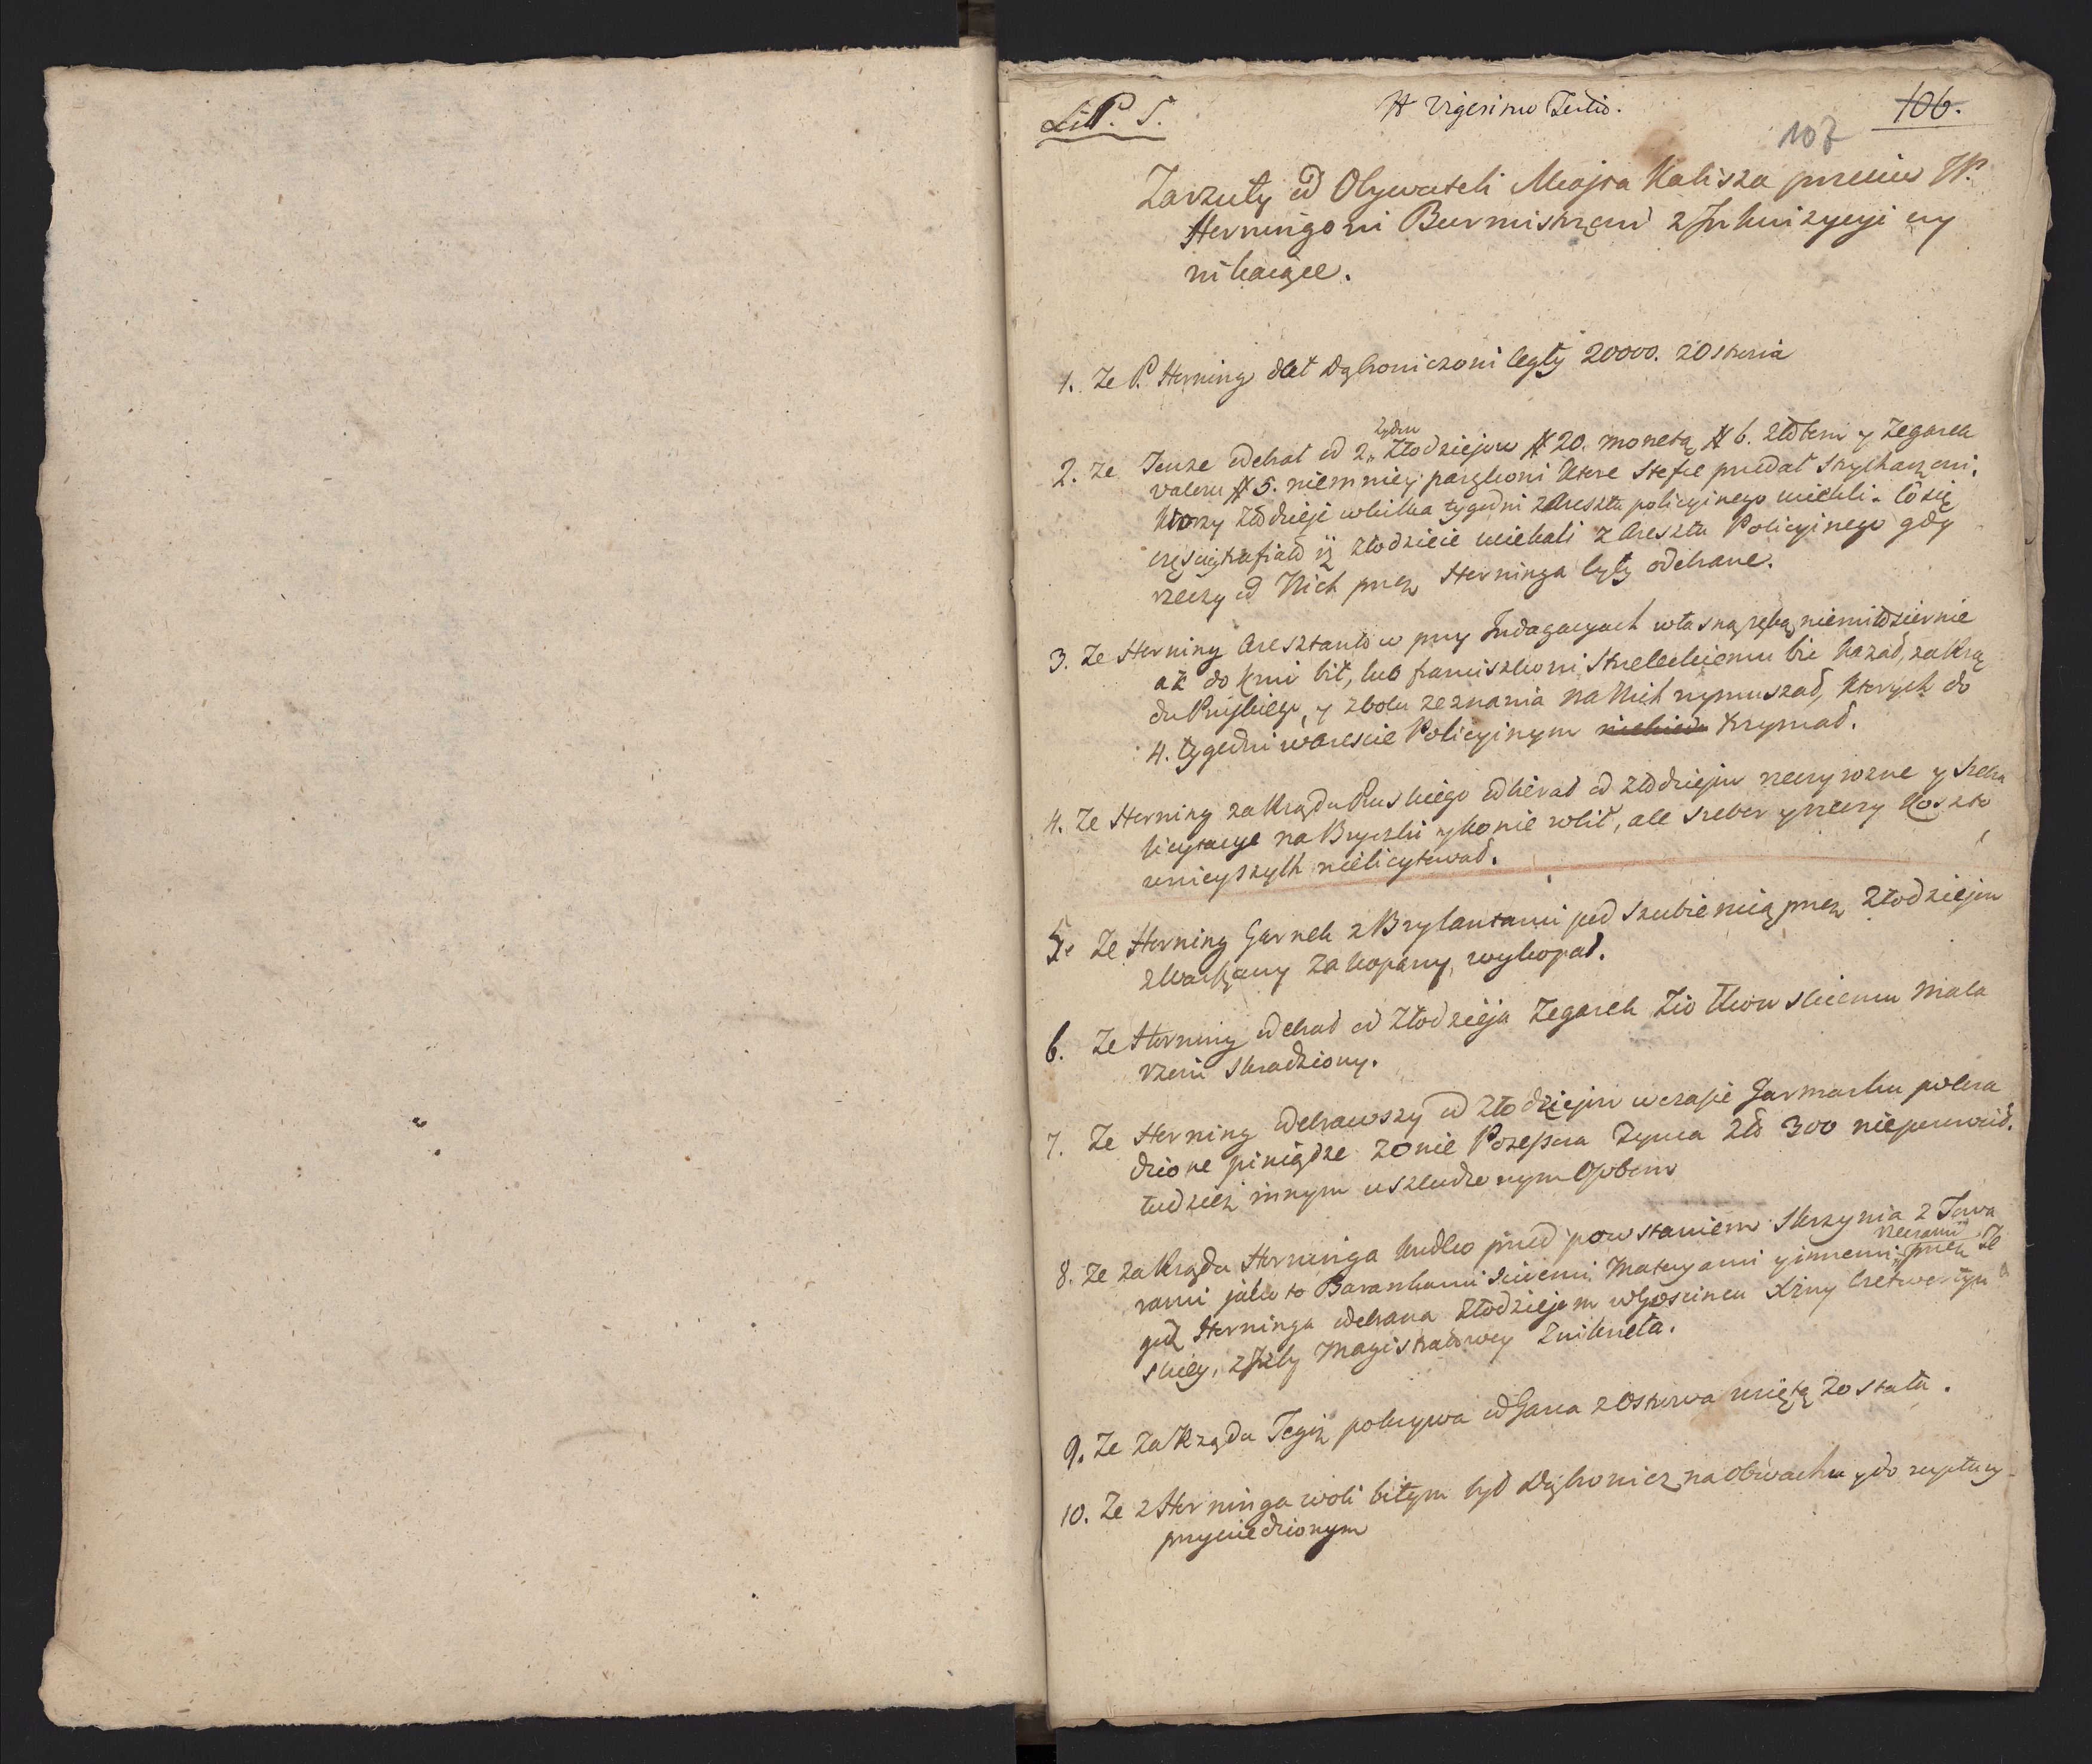 Litt. S. # Vigesimo Tertio. 106.
107
Zarzuty od Obywateli Miasta Kalisza przeciw JP.
Herningowi Burmistrzowi z Inkwizycyi wy
nikaiące.
1. Ze P. Herning dał Dąbrowiczowi Cegły 20000. z Ostrowia
2. Ze Tenże odebrał od 2. Zydow Złodziejow # 20. monetą # 6. złotem y Zegarek
valoru # 5. niemniey parękoni ktore Stefce przedał Strycharzowi.
Ktorzy Złodzieje wkilka tygodni z Aresztu policyjnego uciekli. Co się
częściey trafiało iż złodzieie uciekali z Aresztu Policyjnego gdy
rzeczy od Nich przez Herninga były odebrane.
3. Ze Herning Aresztantow przy Indagacyach własną ręką niemiłosiernie
aż do krwi bił, lub franciszkowi Strzeleckiemu bić kazał, za Rzą
du Pruskiego, y zbolu zeznania na Nich wymuszał, ktorych do
4. tygodni w Areście Policyjnym trzymał.
4. Ze Herning za Rządu Pruskiego odbierał od złodziejow rzeczy rozne y srebra
licytacye na Bryczki y konie robił, ale sreber y rzeczy koszto
wnieyszych nielicytował.
5. Ze Herning Garnek z Brylantami pod Szubienicą przez Złodziejow
zwarszawy zakopany, wykopał.
6. Ze Herning odebrał od Złodzieja Zegarek Ziołkowskiemu Mala
rzowi Skradziony.
7. Ze Herning odebrawszy od Złodziejow w czasie Jarmarku pokra
dzione piniądze Zonie Possessora Zynca Zło 300 niepowrócił.
tudzież innym uszkodzonym Osobom
8. Ze za Rządu Herninga krotko przed powstaniem Skrzynia z Towa
rami jako to Barankami Siwemi, Materyami y innemi rzeczami przez Te
goż Herninga odebrana Złodziejom w Gościncu Xżny Czetwertyn
skiey, z Izby Magistratowey zniknęła.
9. Ze za Rządu Tegoż pokrywa od Gara z Ostrowa wziętą została.
10. Ze z Herninga woli bitym był Dąbrowicz na odwachu y do ruptury
przywiedzionym